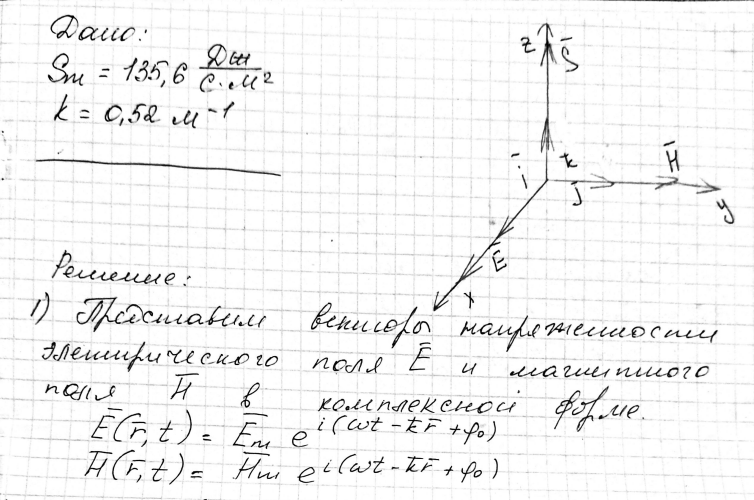 Дано:
Sm = 135,6 Дж/с·м²
k = 0,52 м⁻¹
z
S̄
H̄
ī
k̄
j̄
y
Ē
x
Решение:
1) Представим векторы напряженности
электрического поля Ē и магнитного
поля H̄ в комплексной форме.
Ē(r̄,t) = Ēm e^i(ωt - k̄r̄ + φ₀)
H̄(r̄,t) = H̄m e^i(ωt - k̄r̄ + φ₀)